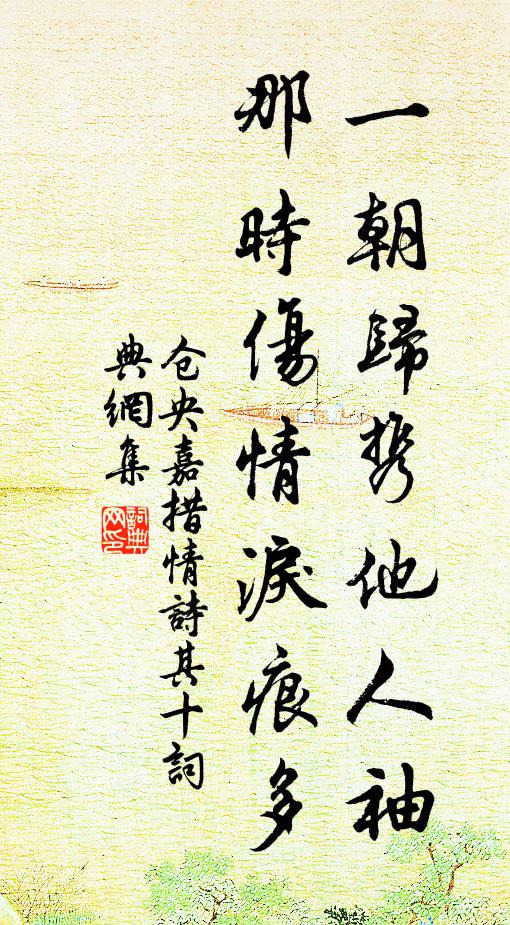 一朝歸携他人袖
那時傷情淚痕多
仓央嘉措情詩其十詞
典網集
詞典網印